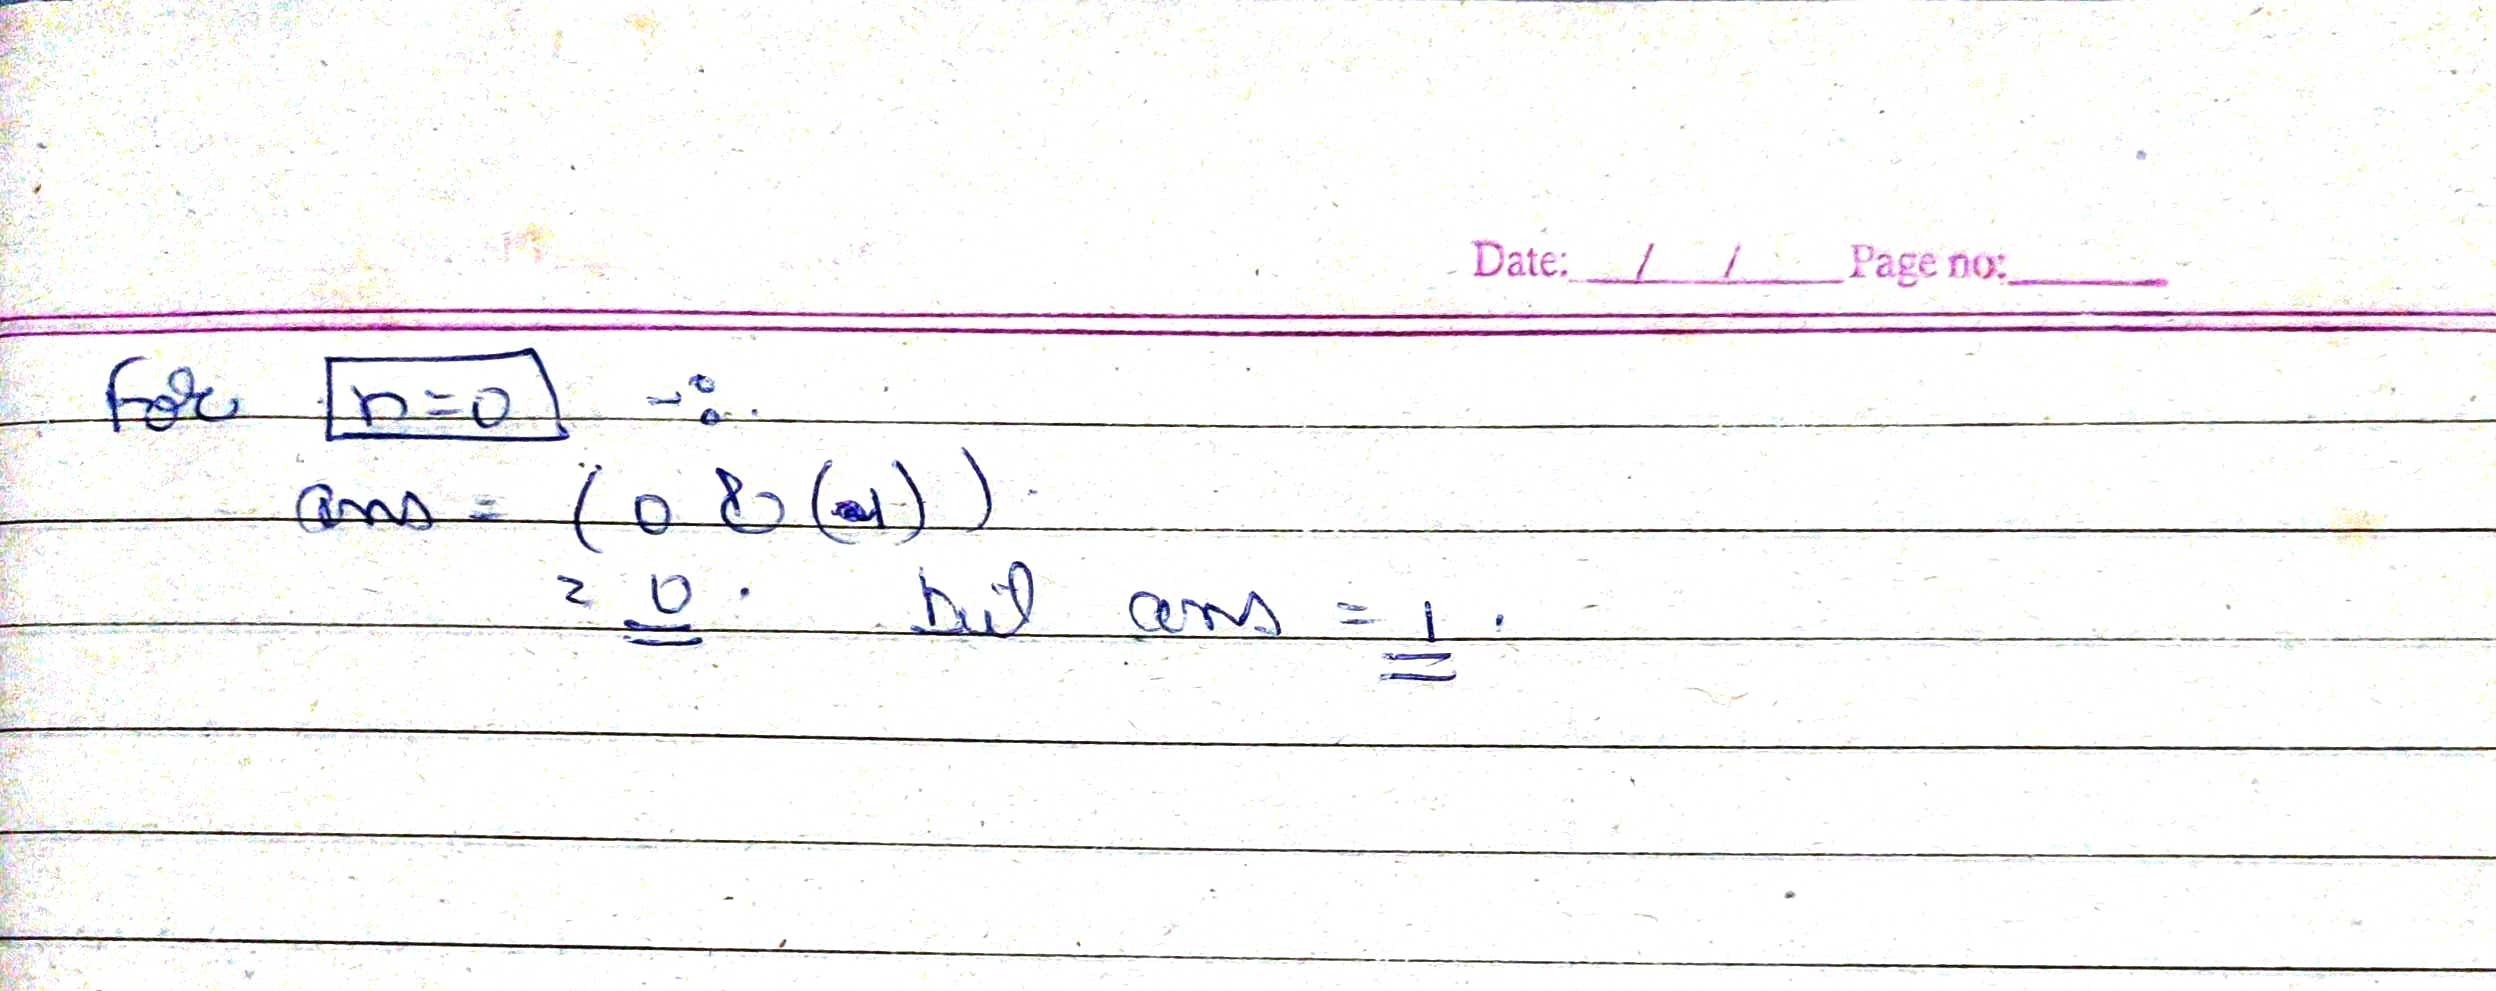 Date: / / Page no:
For n=0 -:
ans = (0 & ( ))
= 0. but ans = 1.